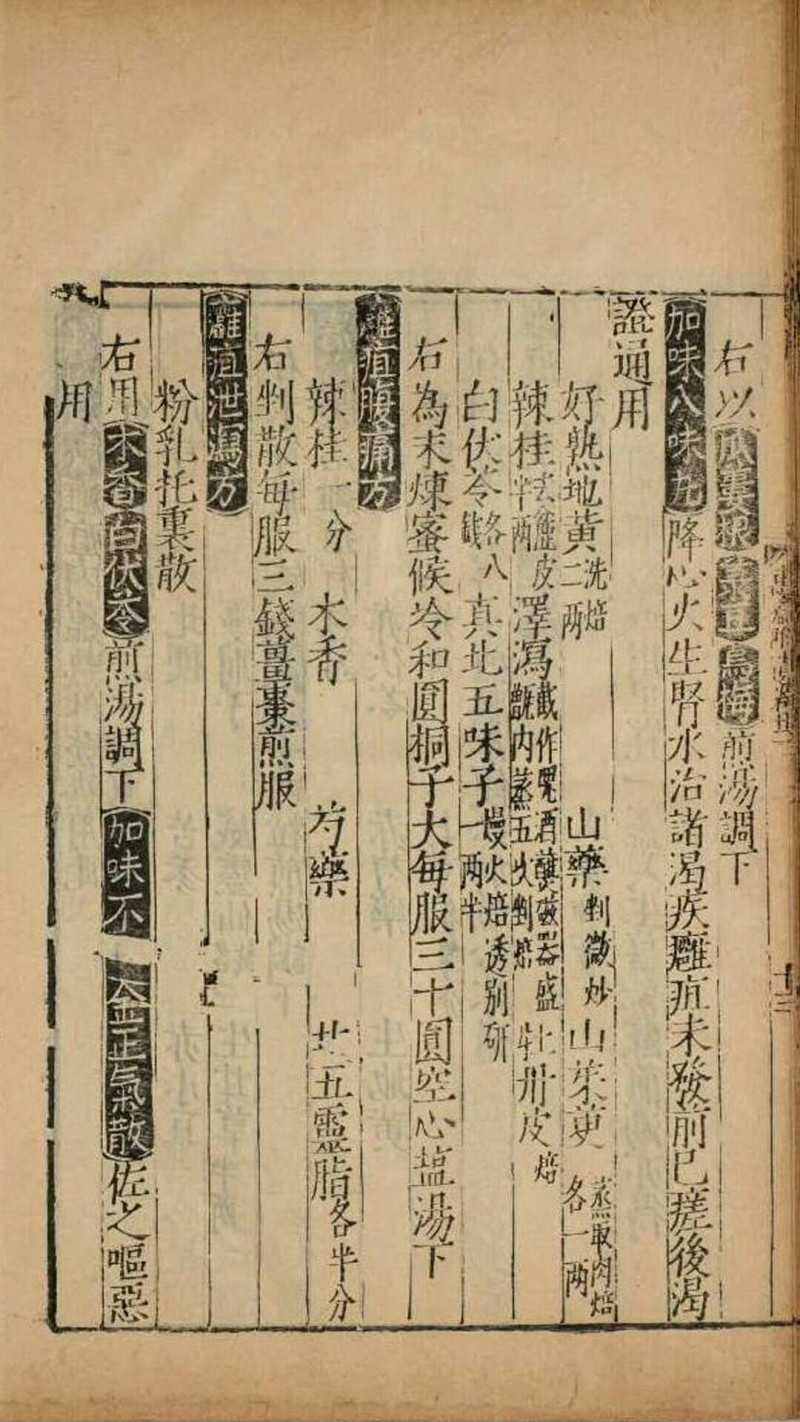 右以瓜蔞根烏梅煎湯調下
加味八味元降心火生腎水治諸渴疾癰疽未發前已瘥後渴
證通用
好熟地黃洗焙二兩 山藥剉微炒 山茱萸蒸取肉焙各一兩
辣桂去麤皮半兩 澤瀉截作塊酒蘸磁器盛甑內蒸五次剉焙 牡丹皮焙
白伏苓各八錢 真北五味子慢火焙透別研一兩半
右為末煉蜜候冷和圓桐子大每服三十圓空心塩湯下
癰疽腹痛方
辣桂一分 木香 芍藥 五靈脂各半分
右剉散每服三錢薑棗煎服
癰疽泄瀉方
粉乳托裏散
右用木香白伏苓煎湯調下加味不
換金正氣散佐之嘔惡
用